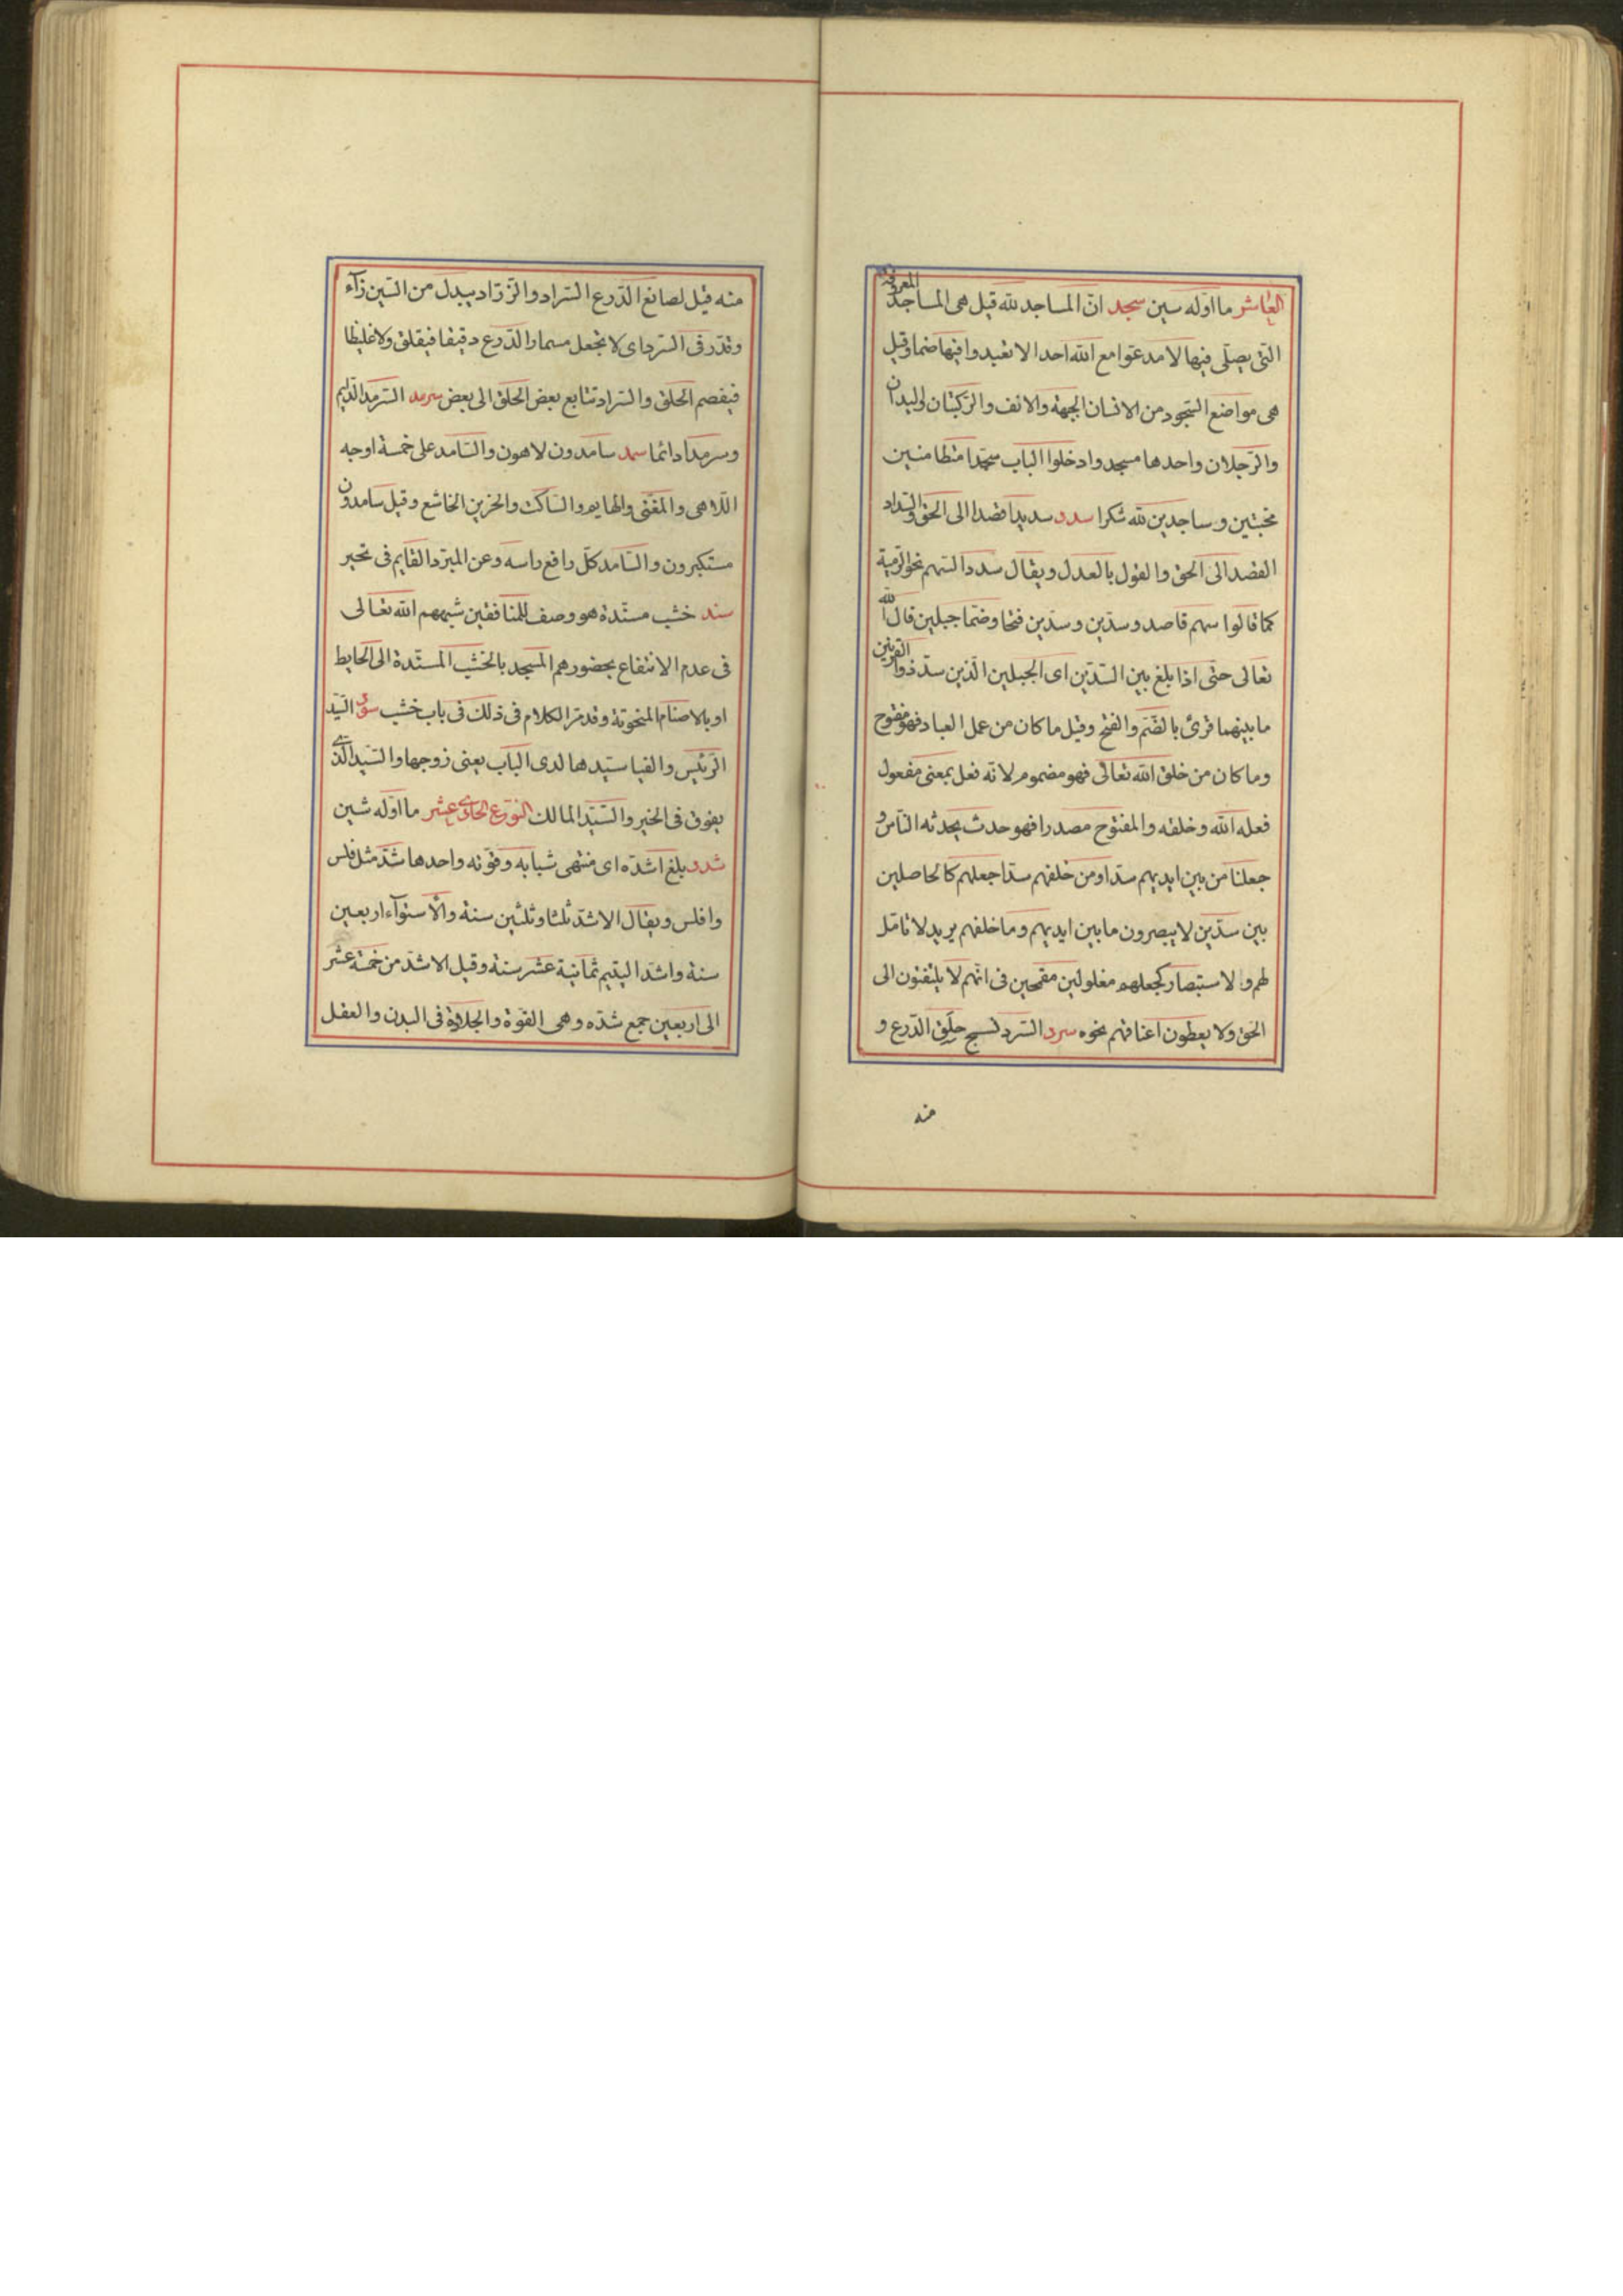 العاشر ما اوله سين سجد انّ المساجد لله قيل هى المساجد المعروفة
التى يصلّى فيها لا تدعوا مع الله احدا لا تعبدوا فيها صنما وقيل
هى مواضع السّجود من الانسان الجبهة والانف والرّكبتان واليدان
والرّجلان واحدها مسجد وادخلوا الباب سجّدا متطامنين
مخبتين وساجدين لله شكرا سدد سديدا قصدا الى الحق والسّداد
القصد الى الحق والقول بالعدل ويقال سدد السّهم نحو الرّمية
كما قالوا سهم قاصد وسدّين وسدّين فتحا وضمّا جبلين قال الله
تعالى حتّى اذا بلغ بين السّدّين اى الجبلين الّذين سدّ ذو القرنين
ما بينهما قرئ بالضّم والفتح وقيل ما كان من عمل العباد فهو مفتوح
وما كان من خلق الله تعالى فهو مضموم لانّه فعل بمعنى مفعول
فعله الله وخلقه والمفتوح مصدرا فهو حدث يحدثه النّاس و
جعلنا من بين ايديهم سدّا ومن خلفهم سدّا جعلهم كالحاصلين
بين سدّين لا يبصرون ما بين ايديهم وما خلفهم يريد لا تامّل
لهم ولا استبصار كجعلهم مغلولين مقمحين فى انّهم لا يلتفتون الى
الحق ولا يعطون اعناقهم نحوه سرد السّرد نسج حلق الدّرع و
منه
منه قيل لصانع الدّرع السّراد والزّرّاد يبدل من السّين زآء
وقدّر فى السّرد اى لا تجعل مسمار الدّرع دقيقا فيقلق ولا غليظا
فيفصم الحلق والسّراد تتابع بعض الحلق الى بعض سرمد السّرمد الدّايم
وسرمدا دائما سمد سامدون لاهون والسّامد على خمسة اوجه
اللّاهى والمغنّى والهايم والسّاكت والحزين الخاشع وقيل سامدون
مستكبرون والسّامد كلّ رافع راسه وعن المبرّد القايم فى تحير
سند خشب مسنّدة هو وصف للمنافقين شبههم الله تعالى
فى عدم الانتفاع بحضورهم المسجد بالخشب المسنّدة الى الحايط
او بالاصنام المنحوتة وقد مرّ الكلام فى ذلك فى باب خشب سود السّيد
الرّئيس والفيا سيّدها لدى الباب يعنى زوجها والسّيد الّذى
يفوق فى الخير والسّيّد المالك النوع الحادى عشر ما اوله شين
شدد بلغ اشدّه اى منتهى شبابه وقوّته واحدها شدّ مثل فلس
وافلس ويقال الاشدّ ثلثا وثلثين سنة والاستوآء اربعين
سنة واشدّ اليتيم ثمانية عشر سنة وقيل الاشدّ من خمسة عشر
الى اربعين جمع شدّه وهى القوّة والجلادة فى البدن والعقل